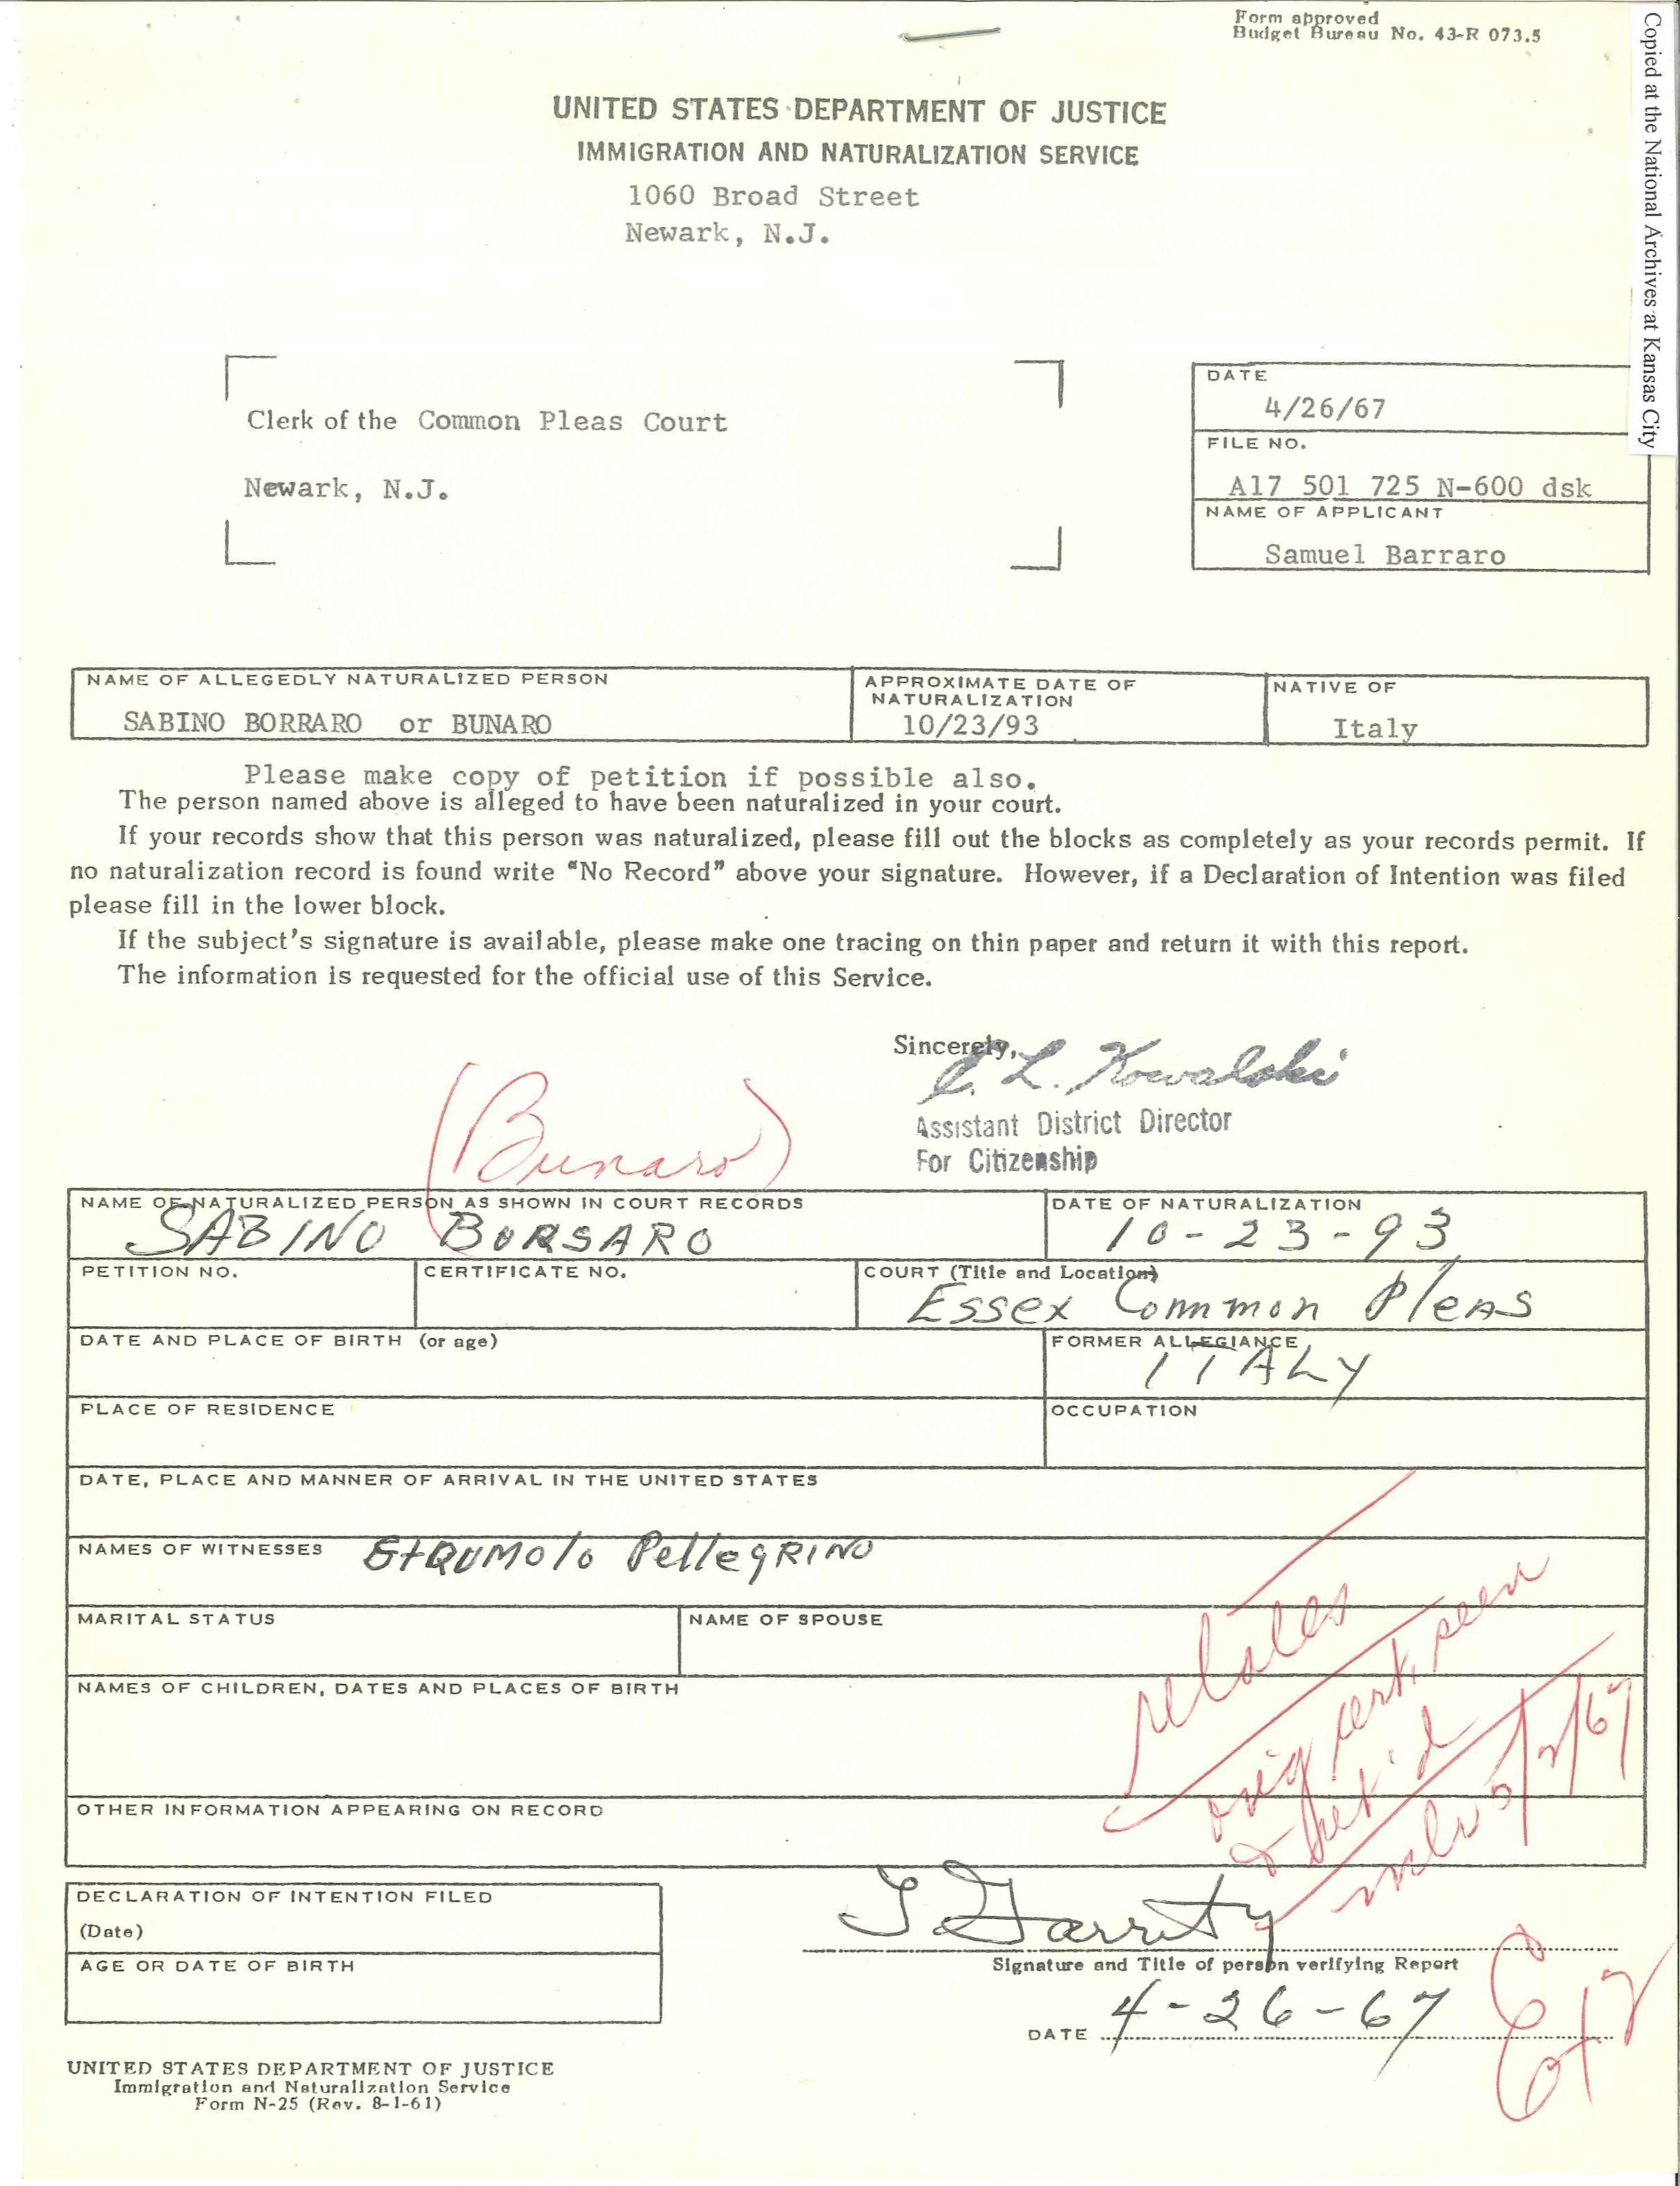 Form approved
Budget Bureau No. 43-R 073.5
Copied at the National Archives at Kansas City
UNITED STATES DEPARTMENT OF JUSTICE
IMMIGRATION AND NATURALIZATION SERVICE
1060 Broad Street
Newark, N.J.
Clerk of the Common Pleas Court
Newark, N.J.
DATE
4/26/67
FILE NO.
A17 501 725 N-600 dsk
NAME OF APPLICANT
Samuel Barraro
NAME OF ALLEGEDLY NATURALIZED PERSON
SABINO BORRARO or BUNARO
APPROXIMATE DATE OF
NATURALIZATION
10/23/93
NATIVE OF
Italy
Please make copy of petition if possible also.
The person named above is alleged to have been naturalized in your court.
If your records show that this person was naturalized, please fill out the blocks as completely as your records permit. If
no naturalization record is found write "No Record" above your signature. However, if a Declaration of Intention was filed
please fill in the lower block.
If the subject's signature is available, please make one tracing on thin paper and return it with this report.
The information is requested for the official use of this Service.
Sincerely,
L. Kowalski
Assistant District Director
For Citizenship
(Bunaro)
NAME OF NATURALIZED PERSON AS SHOWN IN COURT RECORDS
SABINO BORSARO
DATE OF NATURALIZATION
10-23-93
PETITION NO.
CERTIFICATE NO.
COURT (Title and Location)
Essex Common Pleas
DATE AND PLACE OF BIRTH (or age)
FORMER ALLEGIANCE
ITALY
PLACE OF RESIDENCE
OCCUPATION
DATE, PLACE AND MANNER OF ARRIVAL IN THE UNITED STATES
NAMES OF WITNESSES
Pellegrino
MARITAL STATUS
NAME OF SPOUSE
NAMES OF CHILDREN, DATES AND PLACES OF BIRTH
relates
orig cert. seen
& ret'd
5/2/67
OTHER INFORMATION APPEARING ON RECORD
DECLARATION OF INTENTION FILED
(Date)
AGE OR DATE OF BIRTH
Garrity
Signature and Title of person verifying Report
DATE 4-26-67
UNITED STATES DEPARTMENT OF JUSTICE
Immigration and Naturalization Service
Form N-25 (Rev. 8-1-61)